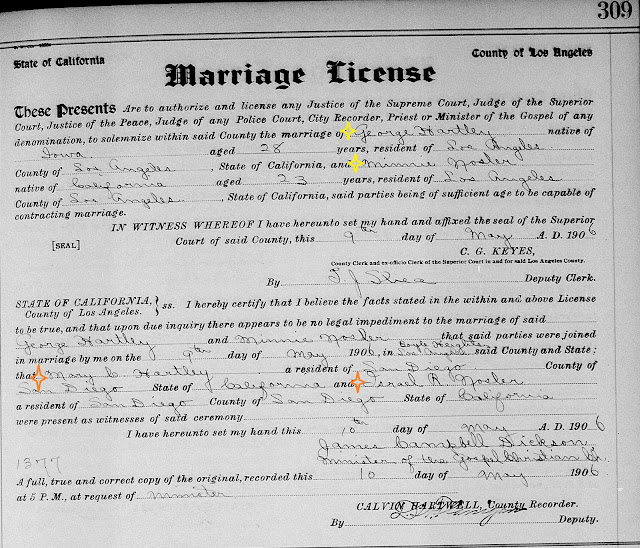 309
State of California
County of Los Angeles
Marriage License
These Presents Are to authorize and license any Justice of the Supreme Court, Judge of the Superior
Court, Justice of the Peace, Judge of any Police Court, City Recorder, Priest or Minister of the Gospel of any
denomination, to solemnize within said County the marriage of George Hartley native of
Iowa aged 28 years, resident of Los Angeles
County of Los Angeles, State of California, and Minnie Nosler
native of California aged 23 years, resident of Los Angeles
County of Los Angeles, State of California, said parties being of sufficient age to be capable of
contracting marriage.
IN WITNESS WHEREOF I have hereunto set my hand and affixed the seal of the Superior
[SEAL] Court of said County, this 9th day of May A. D. 1906
C. G. KEYES,
County Clerk and ex-officio Clerk of the Superior Court in and for said Los Angeles County.
By T. J. Shea Deputy Clerk.
STATE OF CALIFORNIA, County of Los Angeles. } ss. I hereby certify that I believe the facts stated in the within and above License
to be true, and that upon due inquiry there appears to be no legal impediment to the marriage of said
George Hartley and Minnie Nosler that said parties were joined
Boyle Heights
in marriage by me on the 9th day of May 1906, in Los Angeles said County and State;
that Mary C. Hartley a resident of San Diego County of
San Diego State of California and Israel R. Nosler
a resident of San Diego County of San Diego State of California
were present as witnesses of said ceremony.
I have hereunto set my hand this 10th day of May A. D. 1906
James Campbell Dickson
Minister of the Gospel, Christian Ch.
1377
A full, true and correct copy of the original, recorded this 10 day of May 1906
at 5 P. M., at request of minister
CALVIN HARTWELL, County Recorder.
By Deputy.